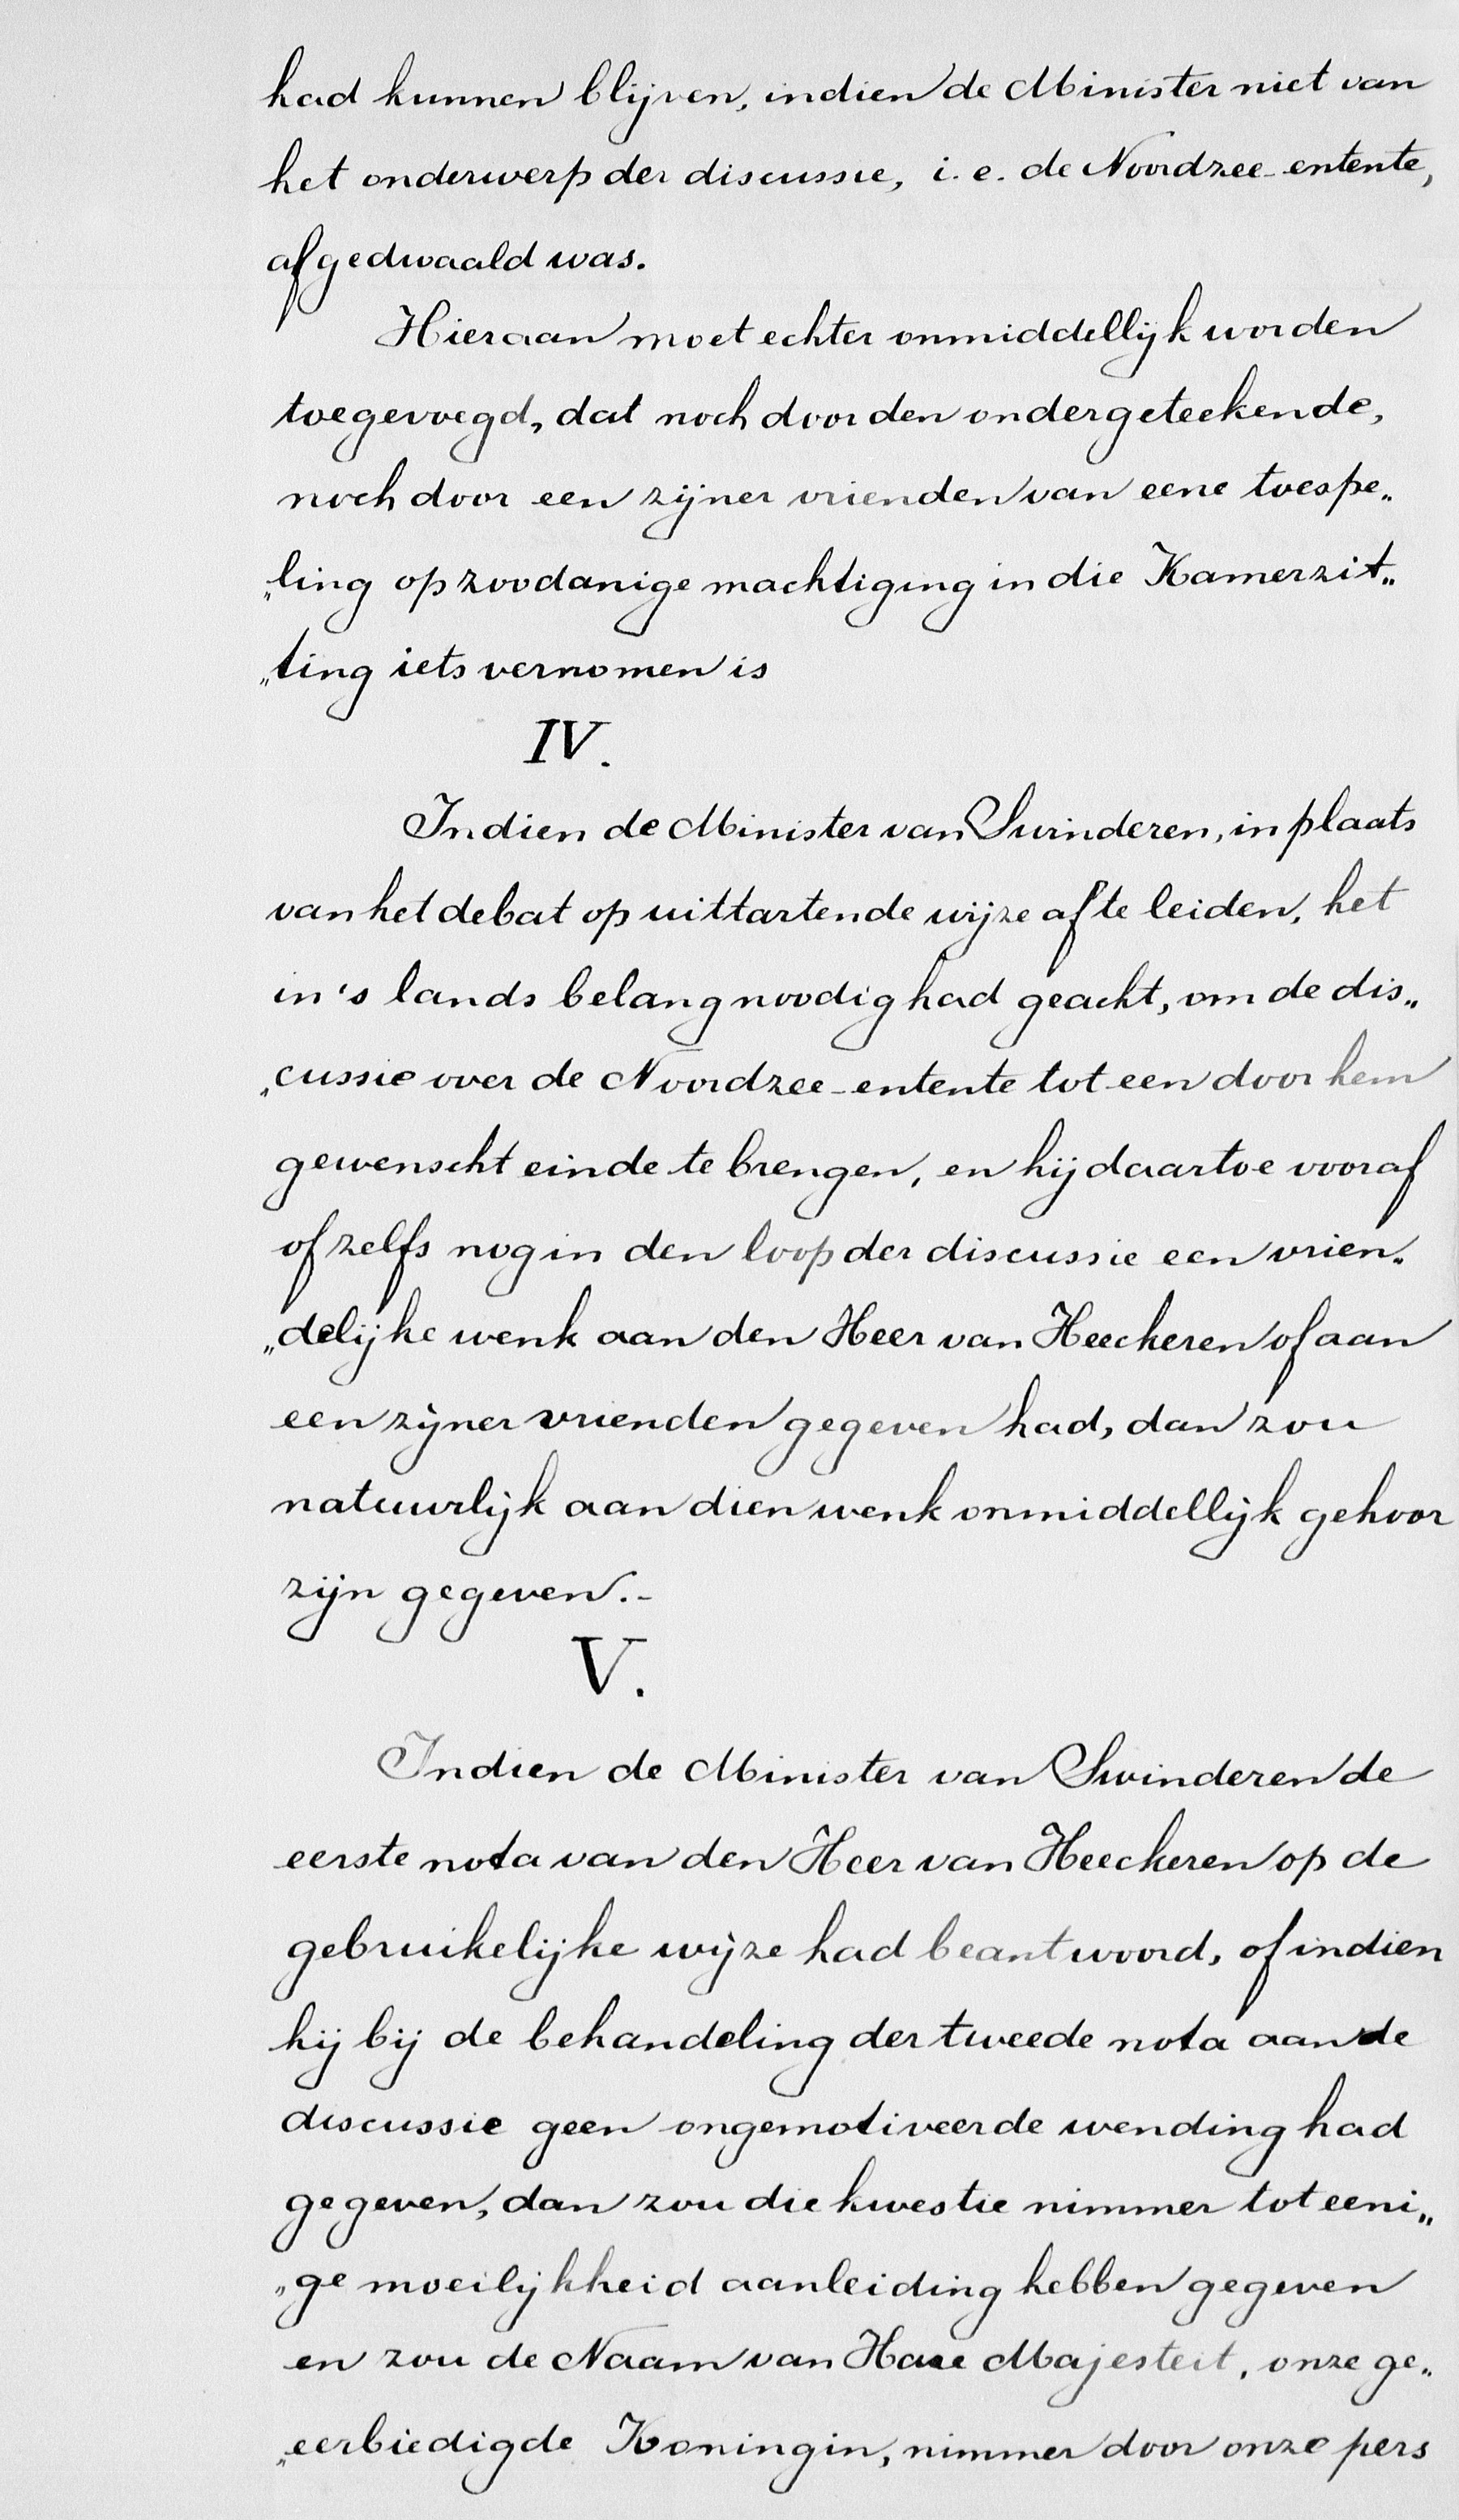 had kunnen blijven, indien de Minister niet van
het onderwerp der discussie, i.e. de Noordzee-entente,
afgedwaald was.
Hieraan moet echter onmiddellijk worden
toegevoegd, dat noch door den ondergeteekende,
noch door een zijner vrienden van eene toespe„
„ling op zoodanige machtiging in die Kamerzit„
„ting iets vernomen is
IV.
Indien de Minister van Swinderen, in plaats
van het debat op uittartende wijze af te leiden, het
in 's lands belang noodig had geacht, om de dis„
„cussie over de Noordzee-entente tot een door hem
gewenscht einde te brengen, en hij daartoe vooraf
of zelfs nog in den loop der discussie een vrien„
„delijke wenk aan den Heer van Heeckeren of aan
een zijner vrienden gegeven had, dan zou
natuurlijk aan dien wenk onmiddellijk gehoor
zijn gegeven.-
V.
Indien de Minister van Swinderen de
eerste nota van den Heer van Heeckeren op de
gebruikelijke wijze had beantwoord, of indien
hij bij de behandeling der tweede nota aan de
discussie geen ongemotiveerde wending had
gegeven, dan zou die kwestie nimmer tot eeni„
„ge moeilijkheid aanleiding hebben gegeven
en zou de Naam van Hare Majesteit, onze ge„
„eerbiedigde Koningin, nimmer door onze pers